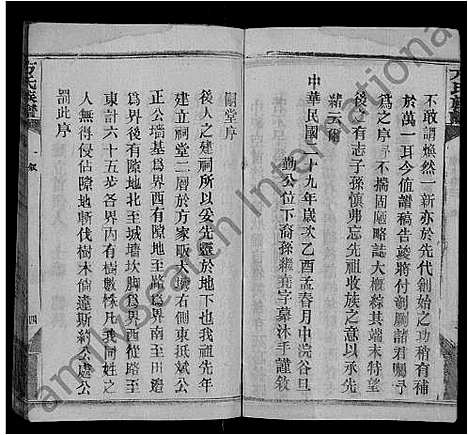 不敢謂煥然一新亦於先代創始之功稍有補
於萬一耳今值譜稿告竣將付剞劂諸君囑予
爲之序予不揣固陋略誌大概綜其端末特望
後之有志子孫慎弗忘先祖收族之意以承先
緒云爾
中華民國 十九年歲次乙酉孟春月中浣谷旦
勤公位下裔孫繼堯字慕沐手謹敘
祠堂序
後人之建祠所以爰先靈於地下也我祖先年
建立祠堂二層於方家畈大塆右側東抵斌公
正公墻基爲界西有隙地至路爲界南至田造
爲界後有隙地北至城塆坎脚爲界西從路至
東計六十五步各界內有樹數株我共同姓之
人無得侵佔隙地斬伐樹木倘違斯約公處公
罰此序
方氏族譜
敘
四
FamilySearch International